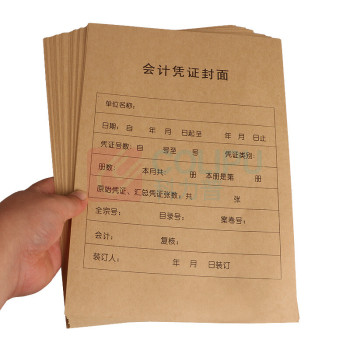 会计凭证封面
单位名称:
日期: 自 年 月 日起至 年 月 日止
凭证号数: 自 号至 号 凭证类别:
册数 本月共: 册 本册是第 册
原始凭证、汇总凭证张数: 共 张
全宗号: 目录号: 案卷号:
会计: 复核:
装订人: 年 月 日装订